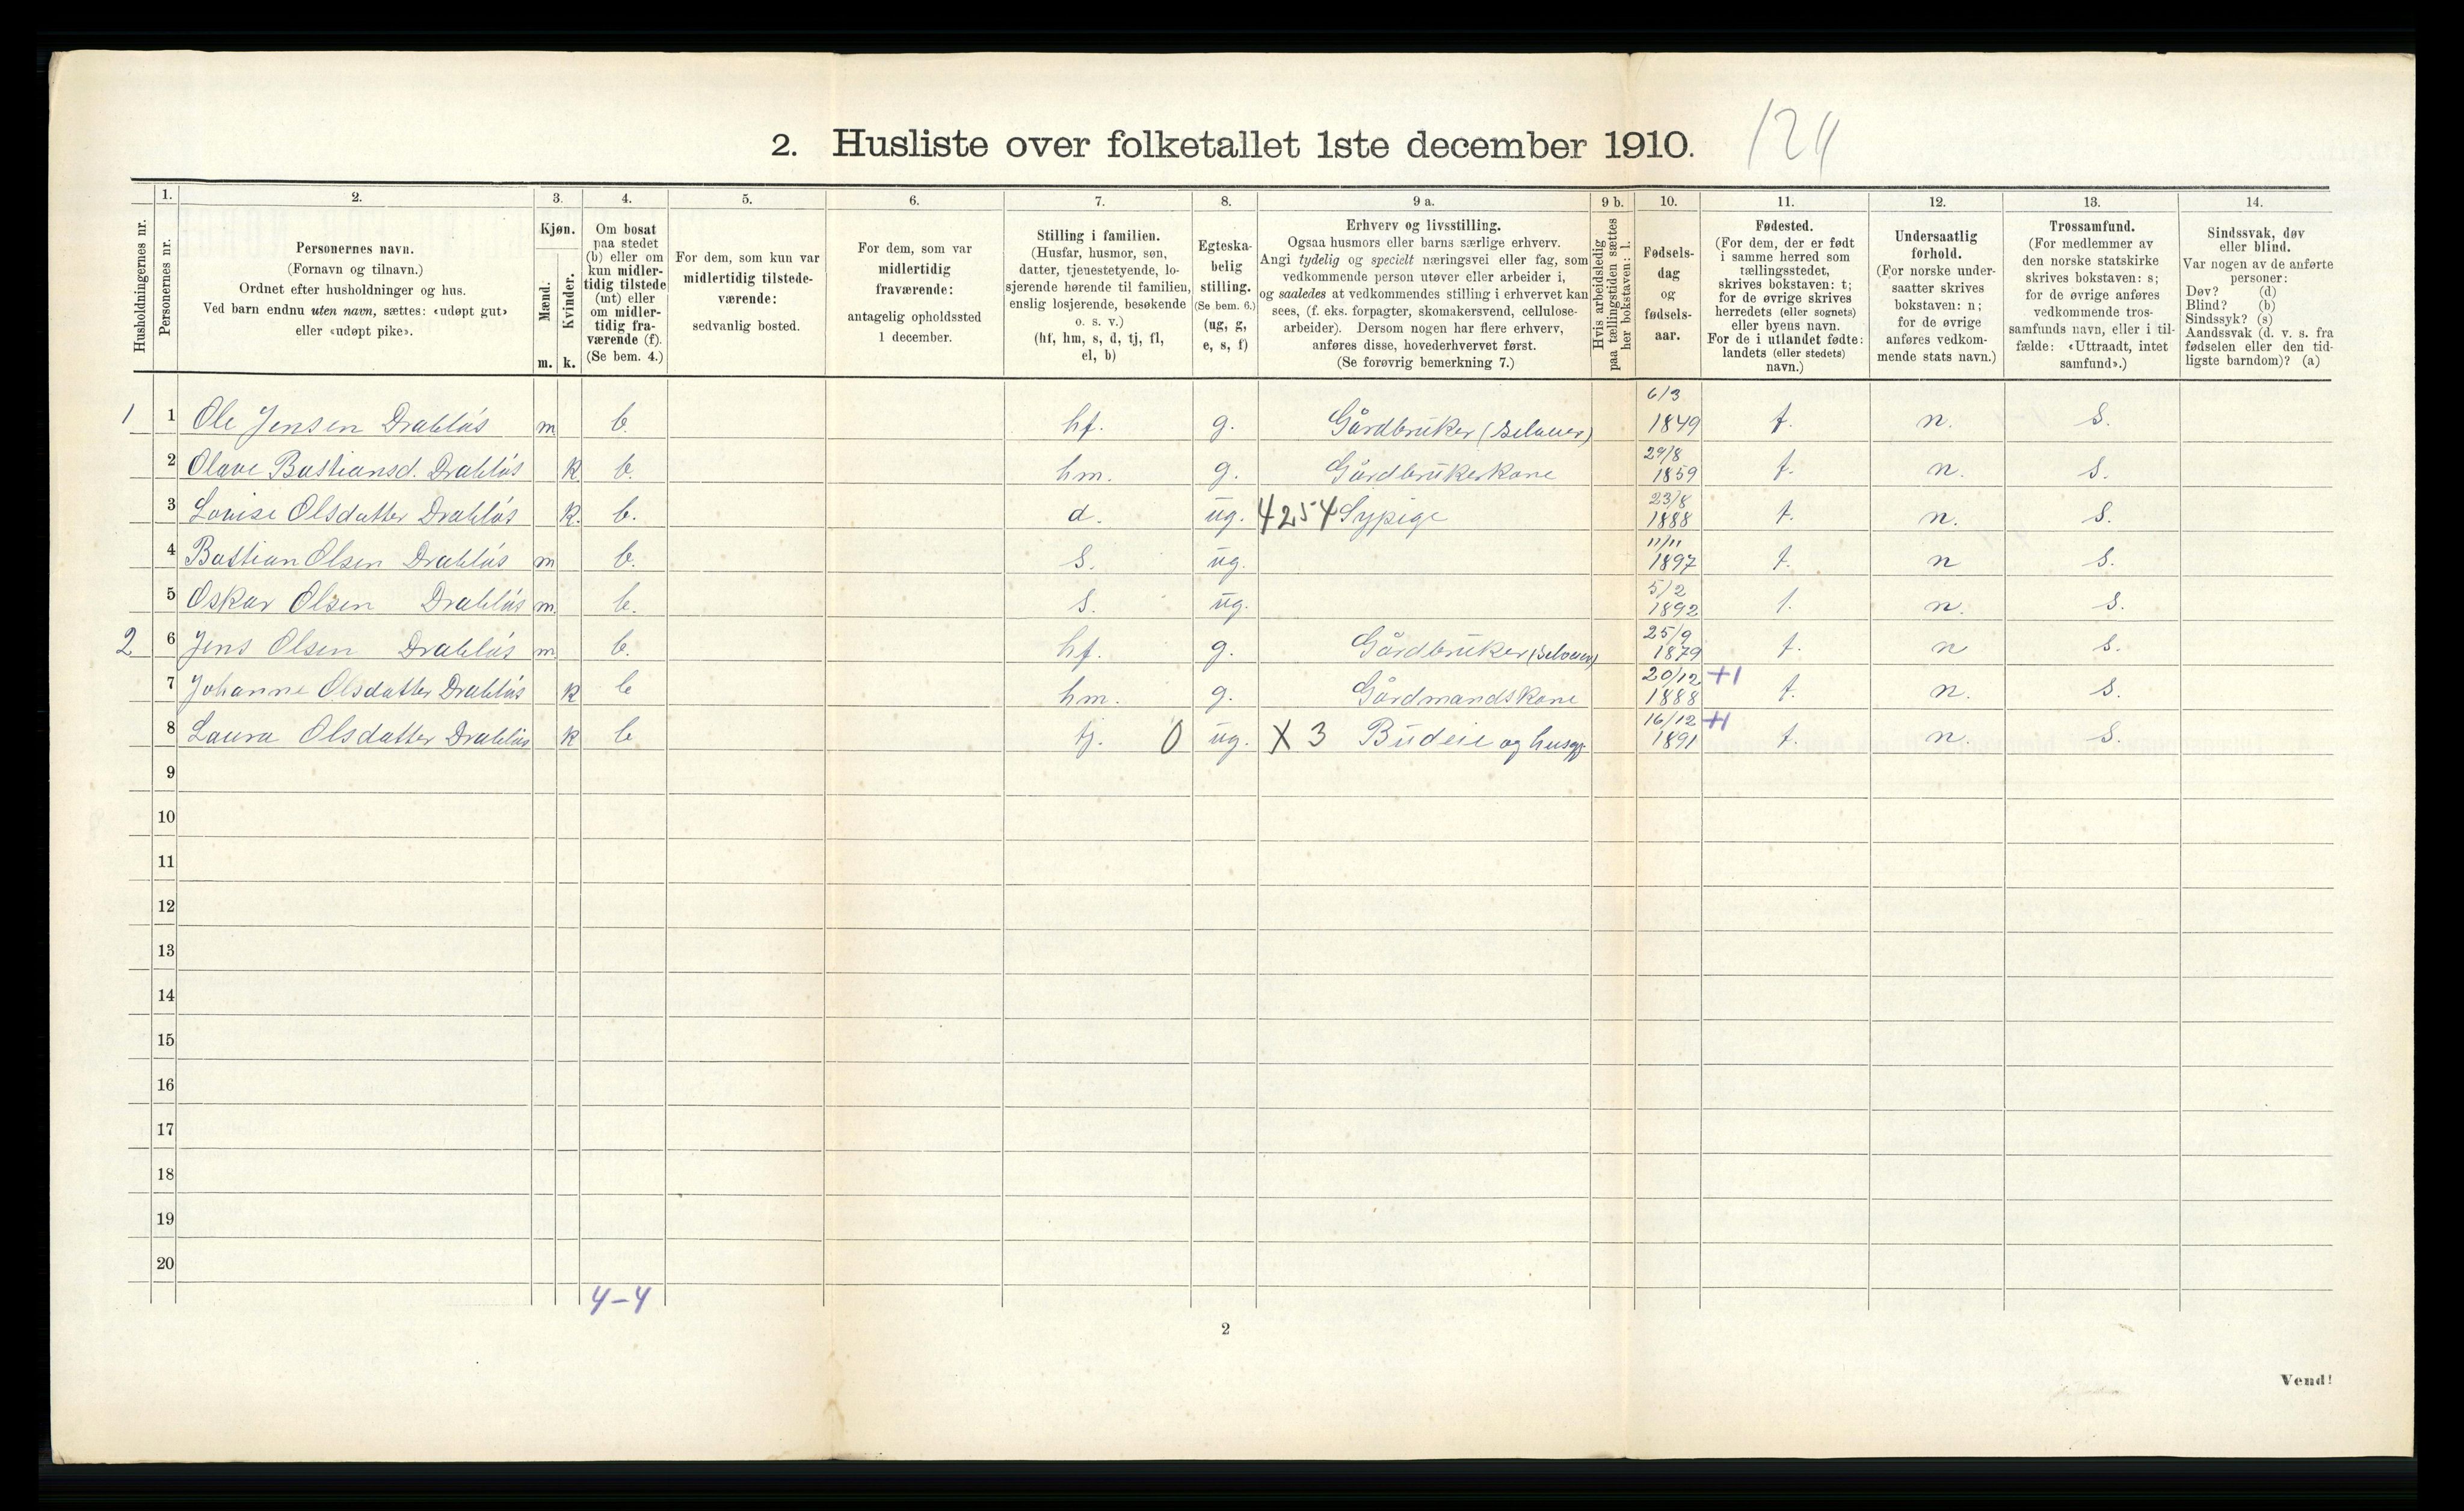 2. Husliste over folketallet 1ste december 1910.
124
Husholdningernes nr.
1.
Personernes nr.
2.
Personernes navn.
(Fornavn og tilnavn.)
Ordnet efter husholdninger og hus.
Ved barn endnu uten navn, sættes: «udøpt gut»
eller «udøpt pike».
3.
Kjøn.
Mænd.
Kvinder.
m. k.
4.
Om bosat
paa stedet
(b) eller om
kun midler-
tidig tilstede
(mt) eller
om midler-
tidig fra-
værende (f).
(Se bem. 4.)
5.
For dem, som kun var
midlertidig tilstede-
værende:
sedvanlig bosted.
6.
For dem, som var
midlertidig
fraværende:
antagelig opholdssted
1 december.
7.
Stilling i familien.
(Husfar, husmor, søn,
datter, tjenestetyende, lo-
sjerende hørende til familien,
enslig losjerende, besøkende
o. s. v.)
(hf, hm, s, d, tj, fl,
el, b)
8.
Egteska-
belig
stilling.
(Se bem. 6.)
(ug, g,
e, s, f)
9 a.
Erhverv og livsstilling.
Ogsaa husmors eller barns særlige erhverv.
Angi tydelig og specielt næringsvei eller fag, som
vedkommende person utøver eller arbeider i,
og saaledes at vedkommendes stilling i erhvervet kan
sees, (f. eks. forpagter, skomakersvend, cellulose-
arbeider). Dersom nogen har flere erhverv,
anføres disse, hovederhvervet først.
(Se forøvrig bemerkning 7.)
9 b.
Hvis arbeidsledig
paa tællingstiden sættes
her bokstaven: l.
10.
Fødsels-
dag
og
fødsels-
aar.
11.
Fødested.
(For dem, der er født
i samme herred som
tællingsstedet,
skrives bokstaven: t;
for de øvrige skrives
herredets (eller sognets)
eller byens navn.
For de i utlandet fødte:
landets (eller stedets)
navn.)
12.
Undersaatlig
forhold.
(For norske under-
saatter skrives
bokstaven: n;
for de øvrige
anføres vedkom-
mende stats navn.)
13.
Trossamfund.
(For medlemmer av
den norske statskirke
skrives bokstaven: s;
for de øvrige anføres
vedkommende tros-
samfunds navn, eller i til-
fælde: «Uttraadt, intet
samfund».)
14.
Sindssvak, døv
eller blind.
Var nogen av de anførte
personer:
Døv? (d)
Blind? (b)
Sindssyk? (s)
Aandssvak (d. v. s. fra
fødselen eller den tid-
ligste barndom)? (a)
1 1 Ole Jensen Drabløs m b. hf. g. Gårdbruker (Selveier) 6/3 1849 t. n. s.
2 Olave Bastiansd. Drabløs k b. hm. g. Gårdbrukerkone 29/8 1859 t. n. s.
3 Lovise Olsdatter Drabløs k. b. d. ug. 4254 Sypige 23/8 1888 t. n. s.
4 Bastian Olsen Drabløs m b. s. ug. 11/11 1897 t. n s.
5 Oskar Olsen Drabløs m. b. s. ug. 5/2 1892 t. n. s.
2 6 Jens Olsen Drabløs m b. hf. g. Gårdbruker (Selveier) 25/9 1879 t. n s.
7 Johanne Olsdatter Drabløs k b hm. g. Gårdmandskone 20/12 +1 1888 t. n. s.
8 Laura Olsdatter Drabløs k b tj. 0 ug. X 3 Budeie og husgj. 16/12 +1 1891 t. n. s.
9
10
11
12
13
14
15
16
17
18
19
20
4-4
2
Vend!